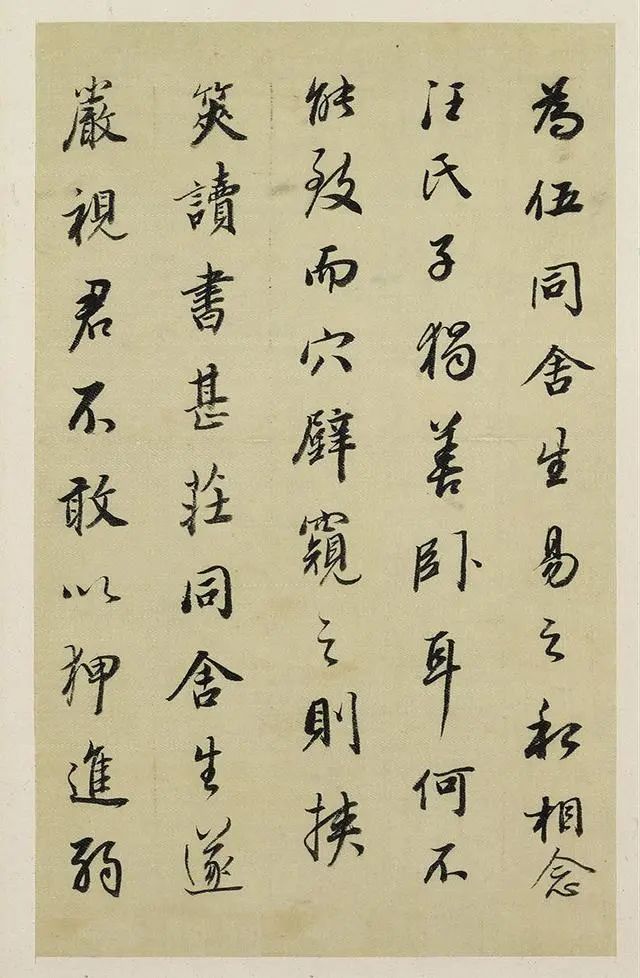 為伍同舍生易之私相念
汪氏子獨善臥耳何不
能致而穴壁窺之則挾
筴讀書甚莊同舍生遂
嚴視君不敢以狎進弱